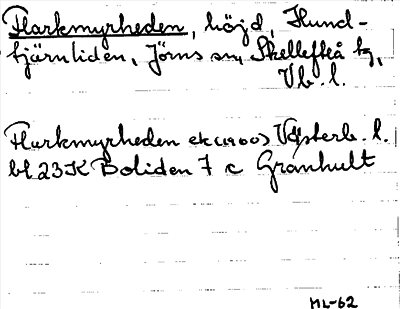 Flarkmyrheden, höjd, Hund-
tjärnliden, Jörns sn, Skellefteå kg,
Vb. l.
Flarkmyrheden ek (1900) Västerb. l.
bl. 23K Boliden 7 c Granhult
ML-62